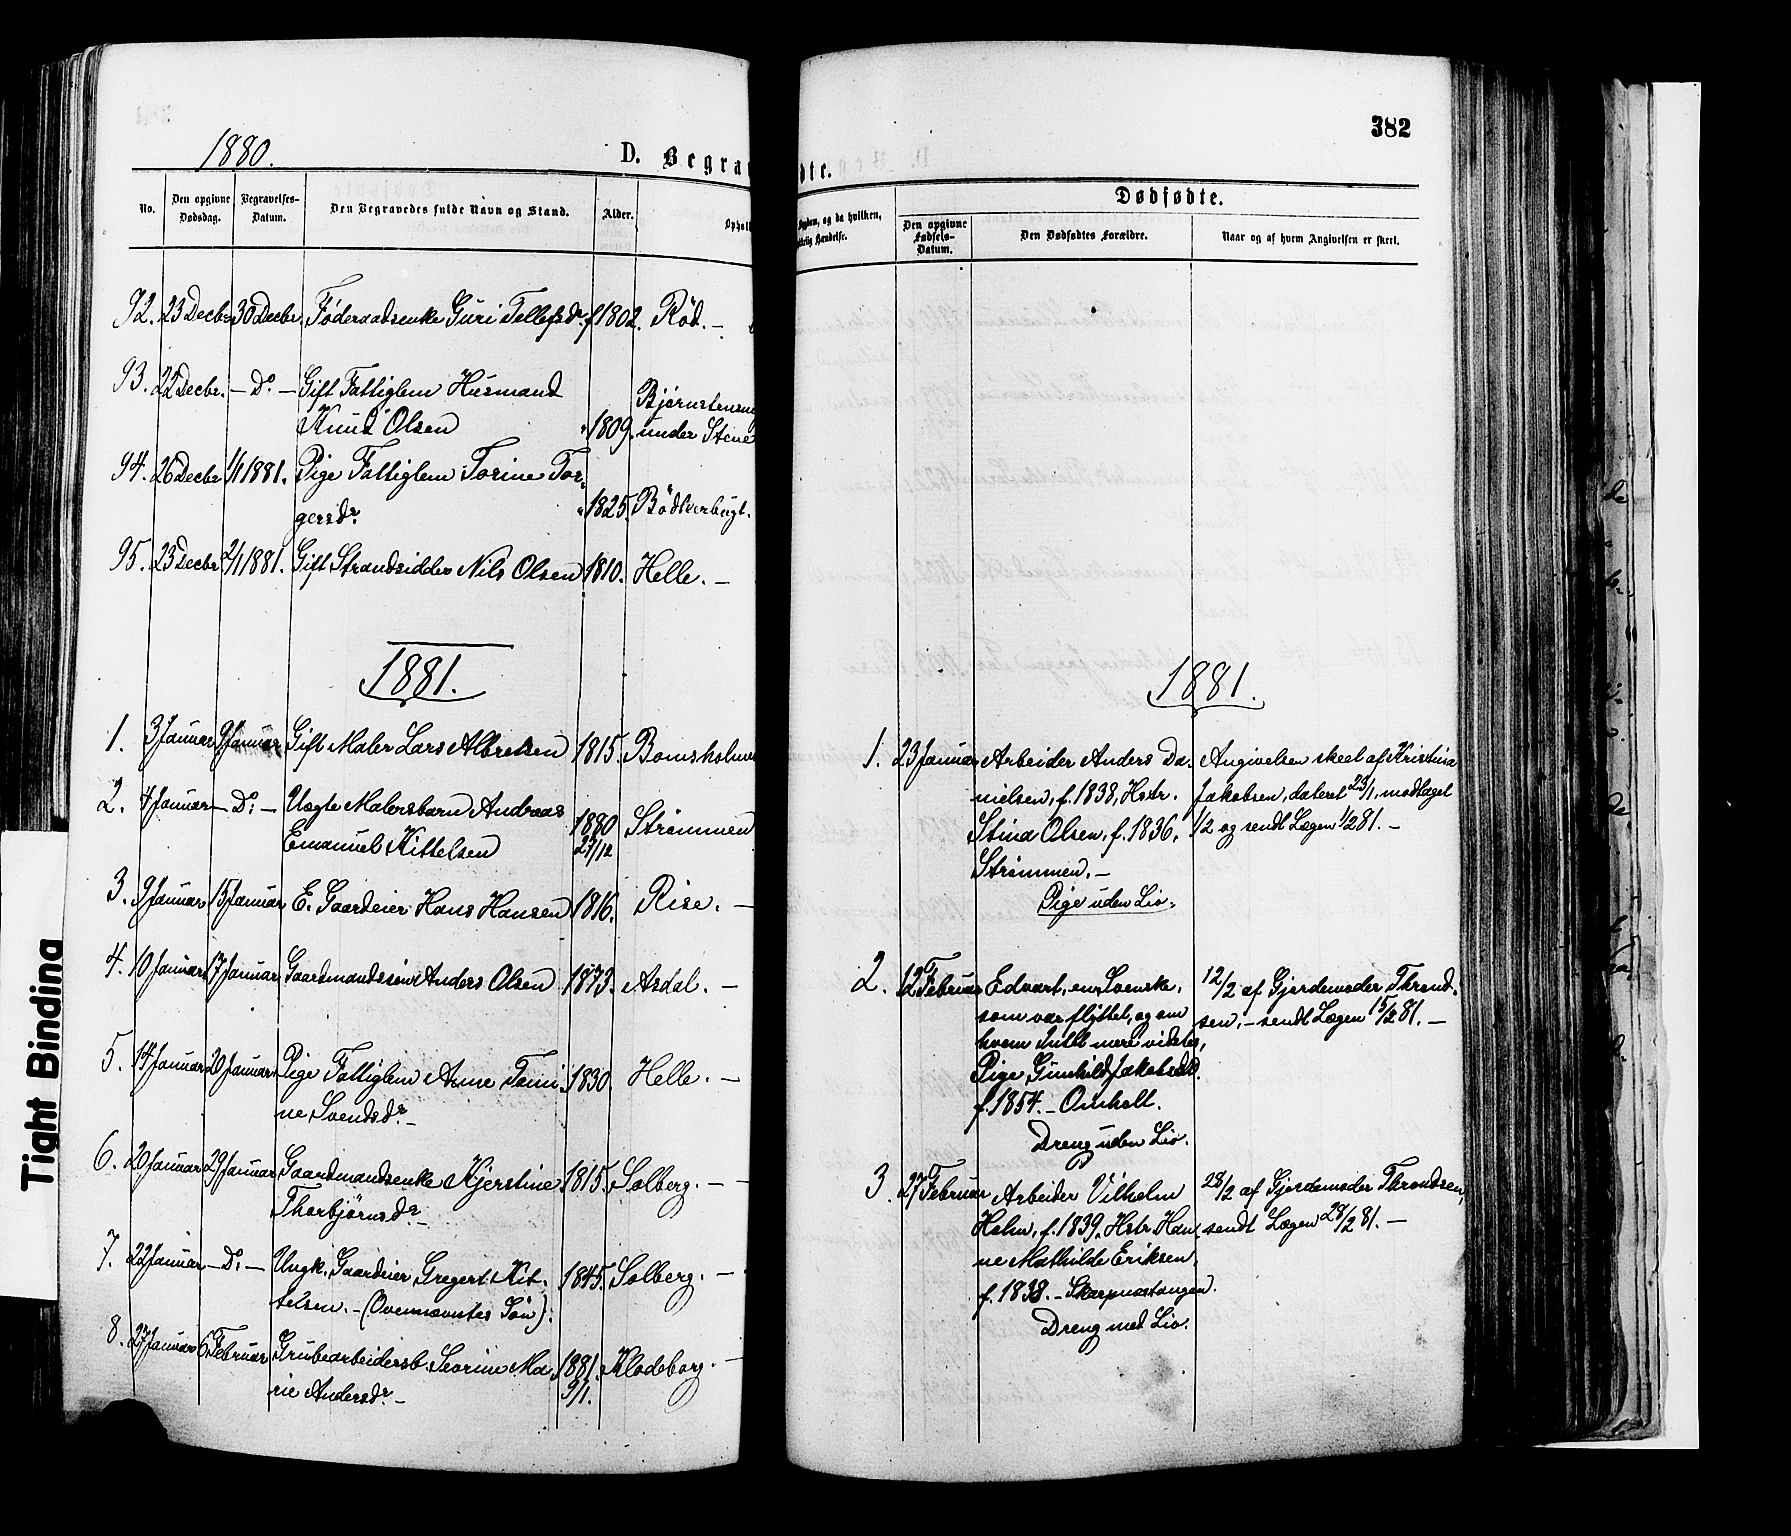 1880.
D. Begrav
No.
Den opgivne Dødsdag.
Begravelses-Datum.
Den Begravedes fulde Navn og Stand.
Alder.
Ophol
92. 23 Decbr 30 Decbr. Føderaadsenke Guri Tellefsdr. f 1802. Röd. –
93. 22 Decbr. – Do. – Gift Fattiglem Husmand
Knud Olsen " 1809. Bjørnstensm
under Stene
94. 26 Decbr 1/1 1881. Pige Fattiglem Torine Tor-
gersdr. " 1825. Bødkerbugt.
95. 23 Decbr 2/1 1881. Gift Strandsidder Nils Olsen 1810. Helle. –
1881.
1. 3 Januar 9 Januar Gift Maler Lars Albretsen 1815. Bomsholmen
2. 4 Januar – Do: – Uægte Malersbarn Andreas
Emanuel Kittelsen 1880 27/12 Strømmen
3. 9 Januar 15 Januar E. Gaardeier Hans Hansen 1816. Rise. –
4. 10 Januar 17 Januar Gaardmandssøn Anders Olsen 1873. Asdal. –
5. 14 Januar 20 Januar Pige Fattiglem Anne Tomi- 1830. Helle. –
ne Svendsdr. –
6. 20 Januar 29 Januar Gaardmandsenke Kjerstine 1815. Solberg. –
Thorbjørnsdr. –
7. 22 Januar – Do: – Ungk. Gaardeier Gregert Kit- 1845. Solberg. –
telsen. – (Ovennævntes Søn).
8. 27 Januar 6 Februar Grubearbeidersb. Severine Ma- 1881. Klodeborg. –
rie Andersdr. – 9/1.
382
dte.
Sygdom, og da hvilken,
delig Hændelse.
Dødfødte.
Den opgivne Fødsels-Datum.
Den Dødfødtes Forældre.
Naar og af hvem Angivelsen er skeet.
1881.
1. 23 Januar Arbeider Anders Da- Angivelsen skeet af Kristina
nielsen, f. 1838, Hstr. Jakobsen, dateret 23/1, modtaget
Stina Olsen, f. 1836, 1/2 og sendt Lægen 1/2 81. –
Strømmen. –
Pige uden Liv.
2. 12 Februar Edvart, en Svenske, 12/2 af Gjordemoder Thrond-
som var flyttet, og om sen, – sendt Lægen 15/2 81. –
hvem Intet mere vidstes,
Pige Gunhild Jakobsdr.
f. 1854. – Omholt.
Dreng uden Liv.
3. 27 Februar Arbeider Vilhelm 28/2 af Gjordemoder Throndsen,
Holm, f. 1839. Hstr. Han- sendt Lægen 28/2 81. –
ne Mathilde Eriksen,
f. 1838. – Skarpnestangen.
Dreng med Liv.
Tight Binding